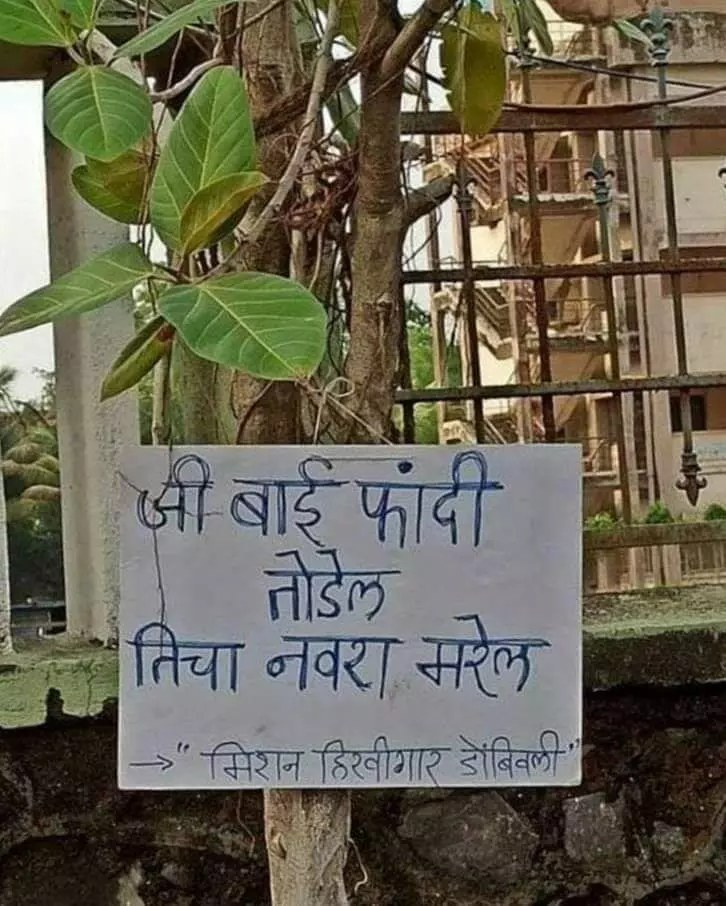 जी बाई फांदी
तोडेल
तिचा नवरा मरेल
→ "मिशन हिरवीगार डोंबिवली"